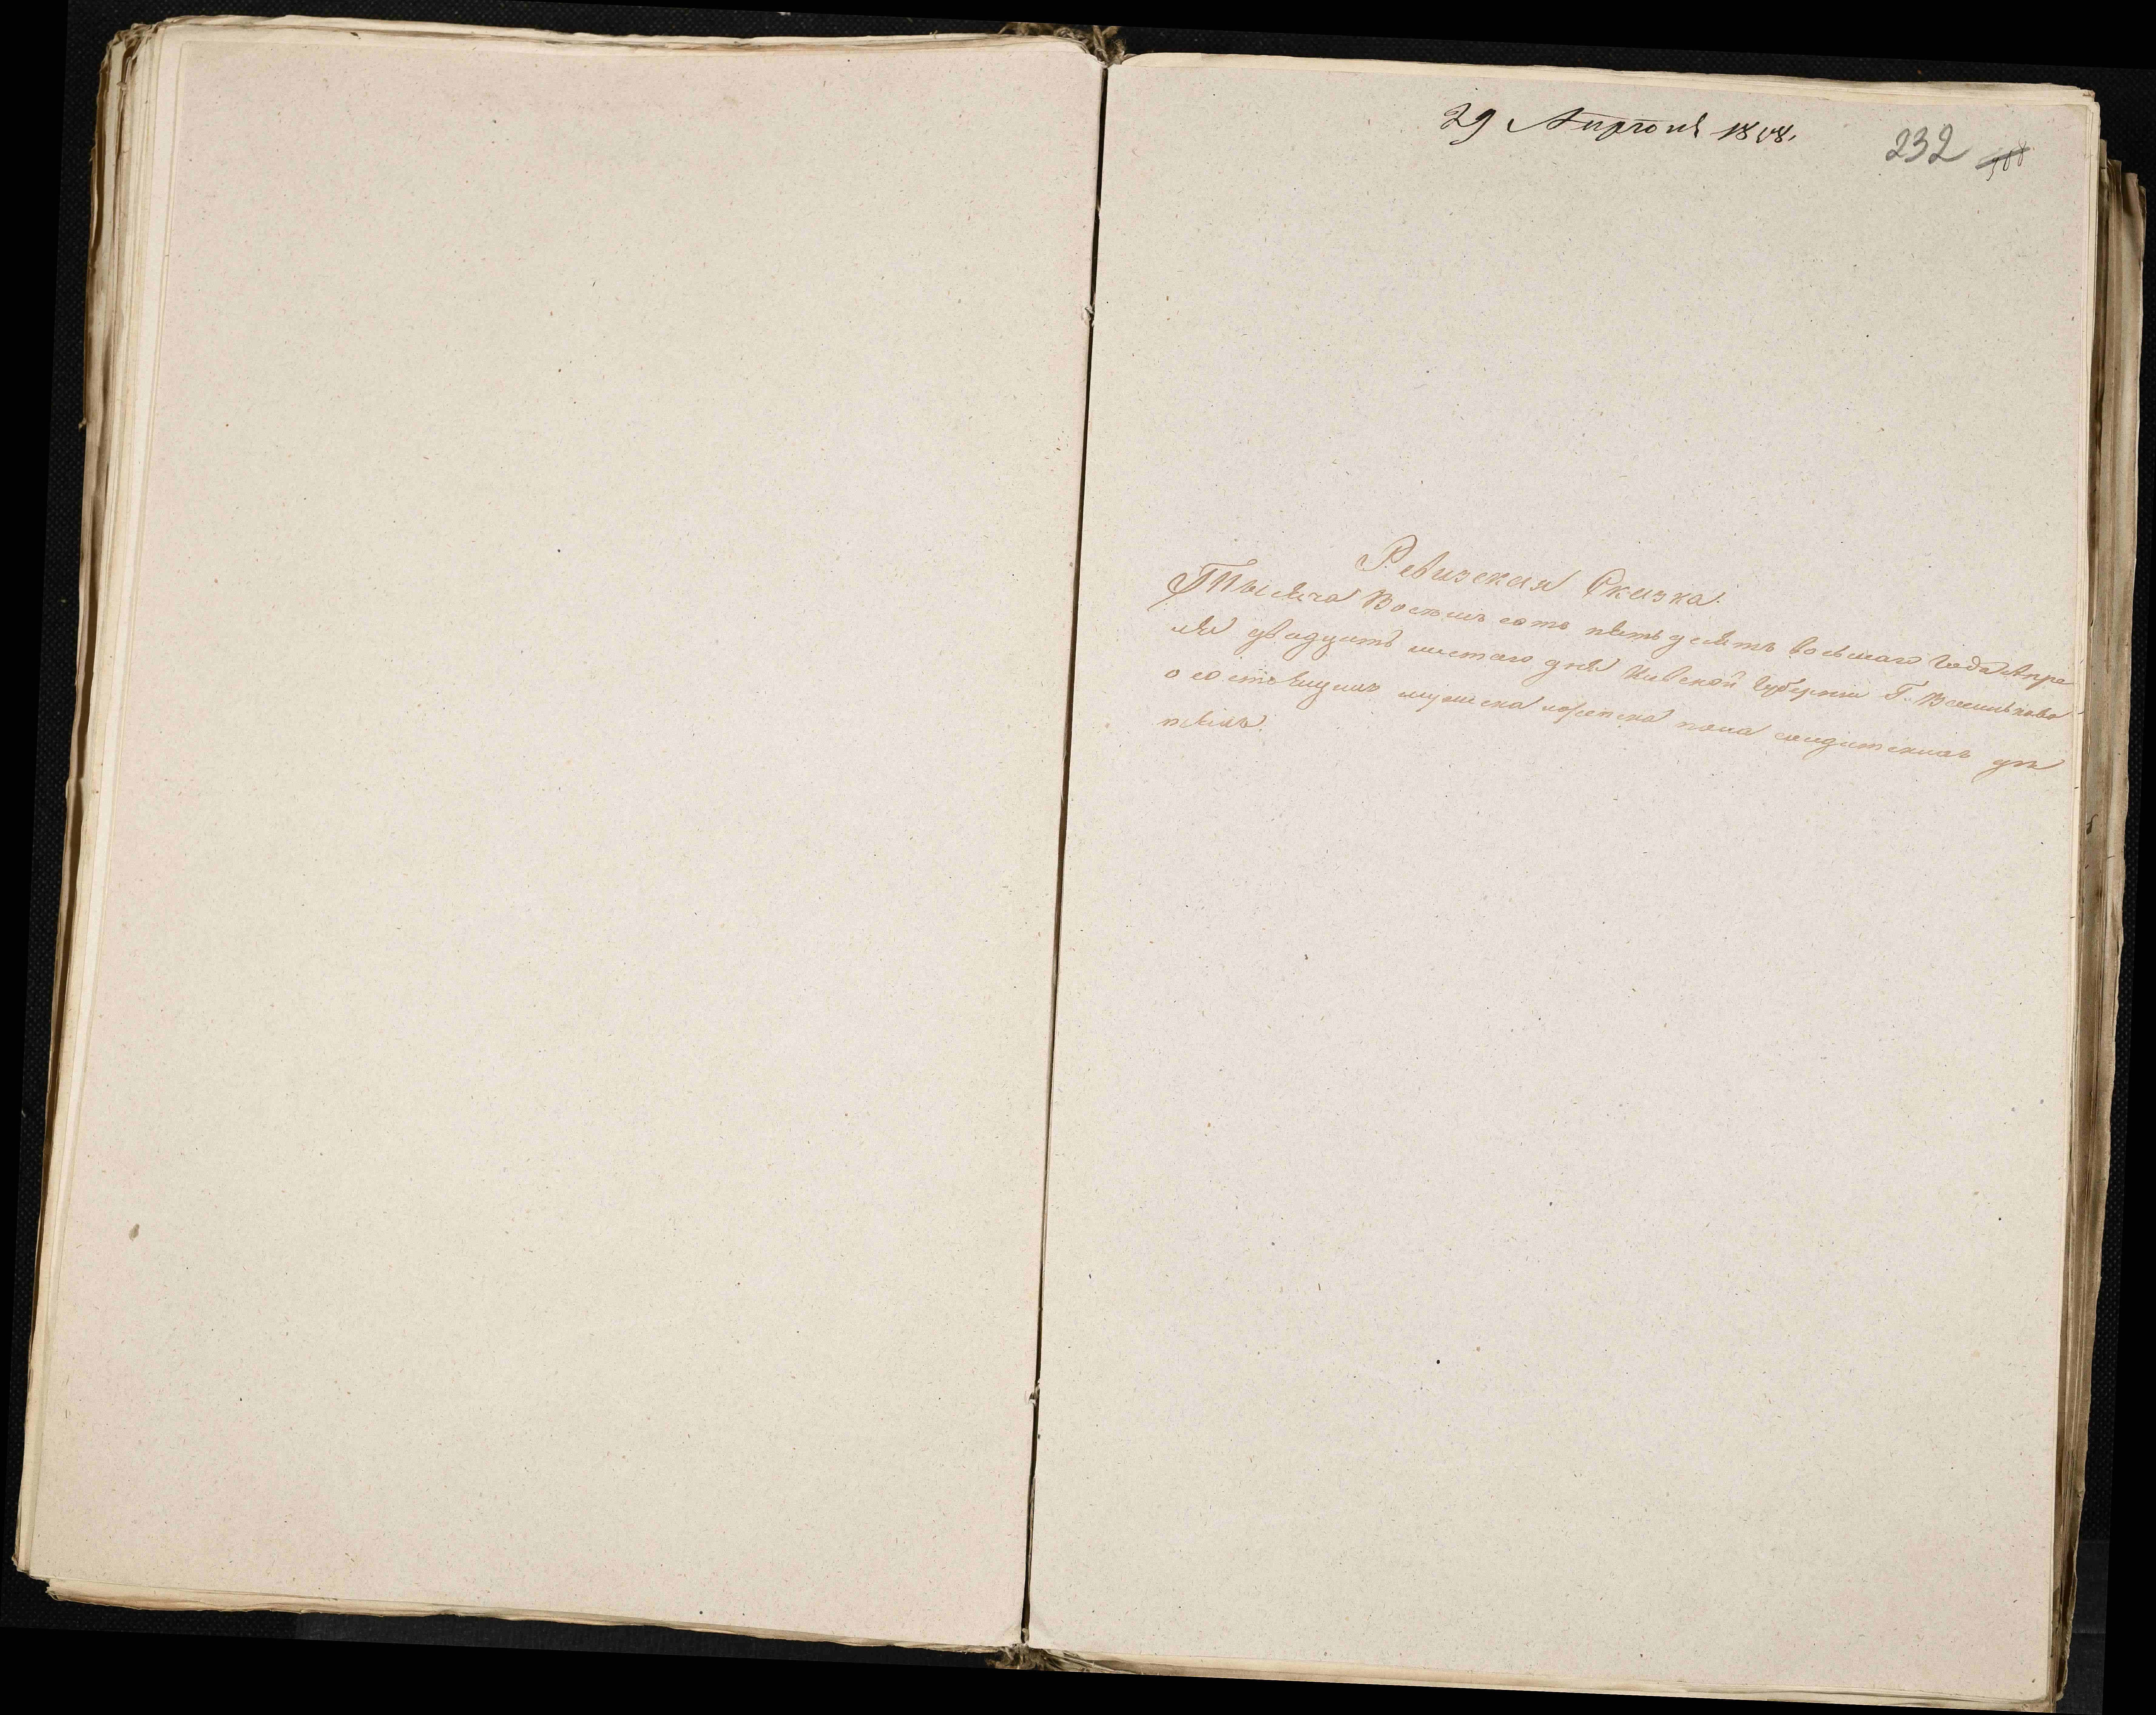 29 Апрѣля 1858.
232
Ревизская Сказка.
Тысяча Восемь сотъ пятьдесятъ восьмаго года Апре
ля двадцать шестаго дня Киевской Губернии Г. Василькова
о состоящихъ мужска и женска пола солдатскихъ дѣ
тяхъ.